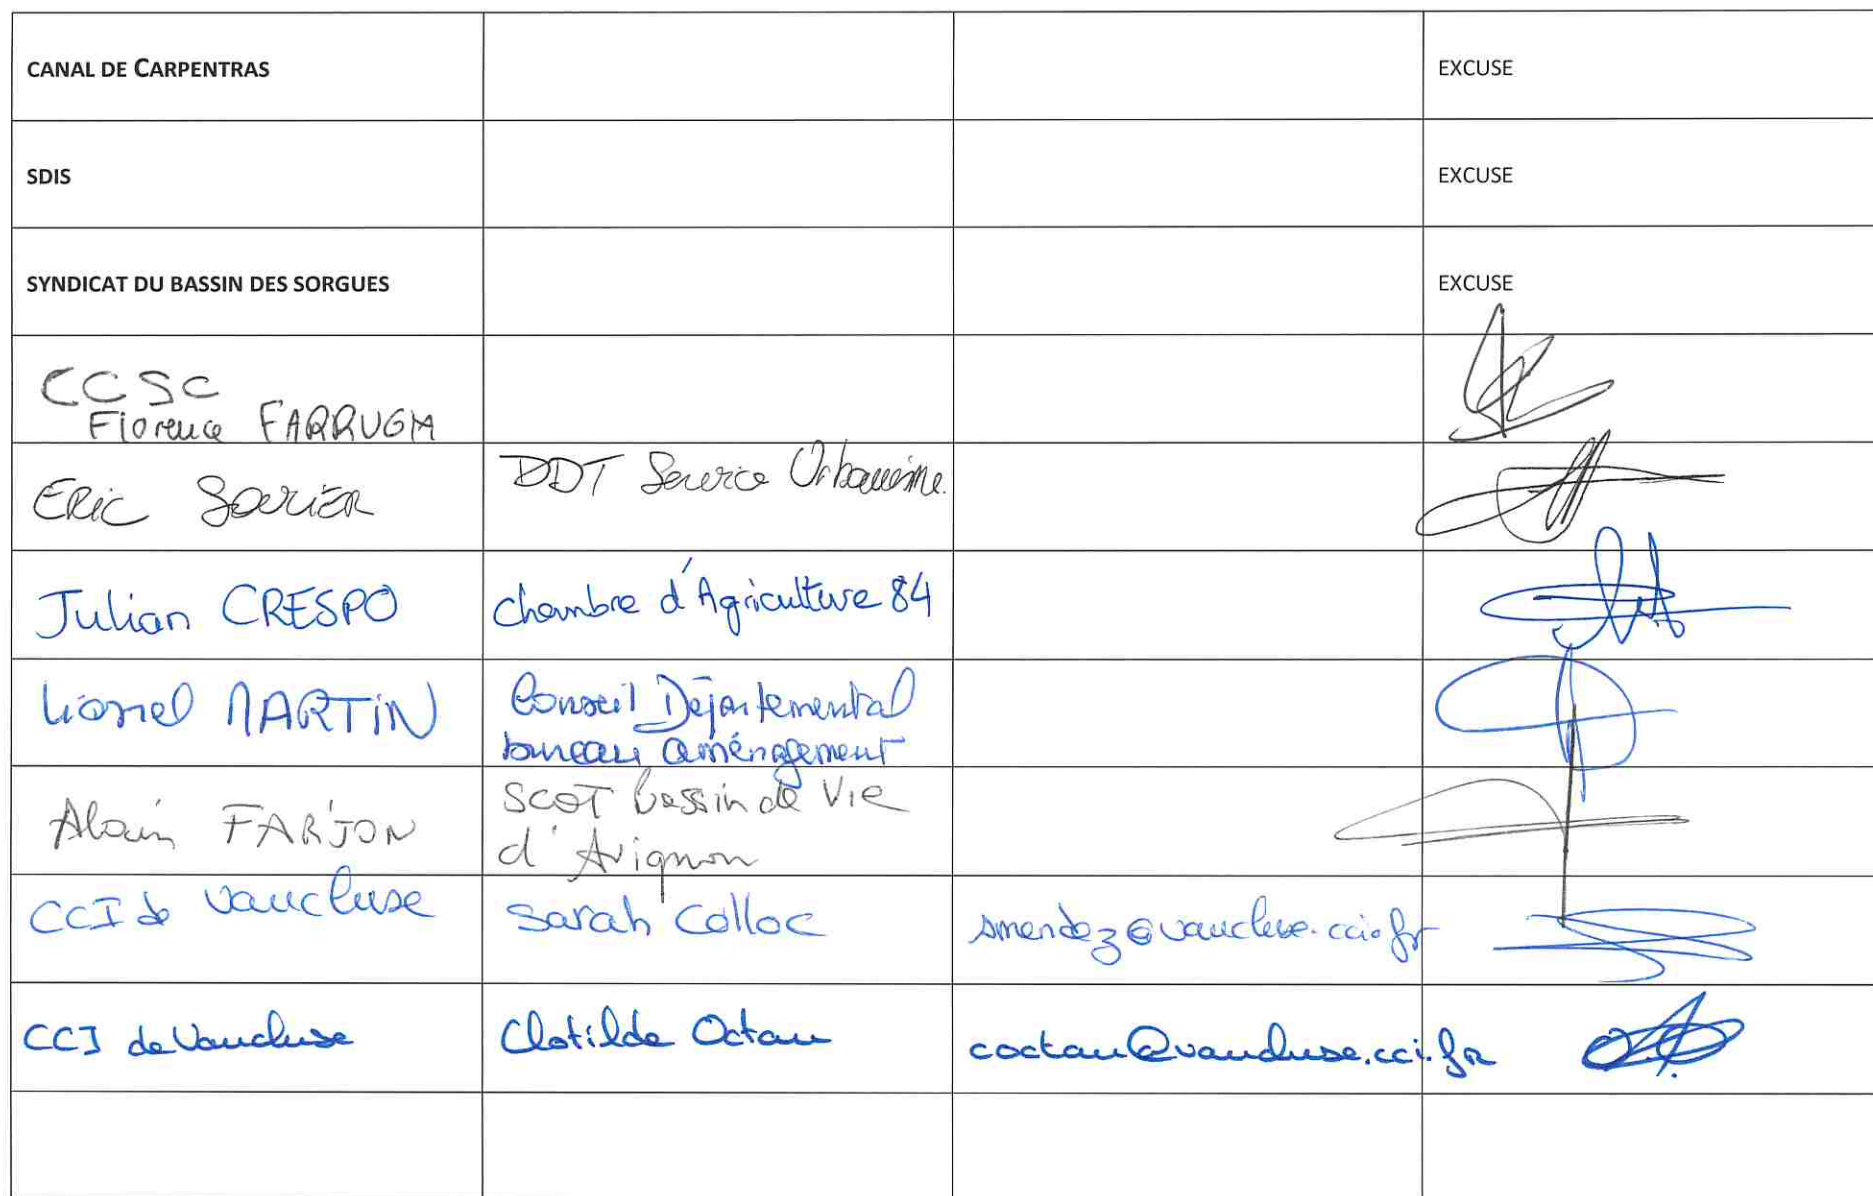 CANAL DE CARPENTRAS EXCUSE
SDIS EXCUSE
SYNDICAT DU BASSIN DES SORGUES EXCUSE
CCSC
Florence FARRUGIA
ERiC DDT Service Urbanisme.
Julian CRESPO Chambre d'Agriculture 84
Lionel MARTiN Conseil Départemental
bureau aménagement
Alain FARJON SCOT bassin de Vie
d'Avignon
CCI de Vaucluse Sarah Colloc smendez@vaucluse.cci.fr
CCI de Vaucluse Clotilde Octau coctau@vaucluse.cci.fr